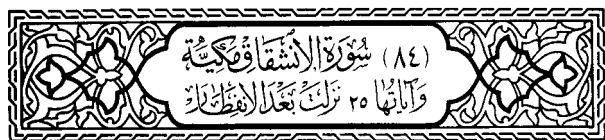 (٨٤) سُورَةُ الانْشِقَاقِ مَكِيَّة
وَآيَاتُهَا ٢٥ نَزَلَتْ بَعْدَ الانْفِطَارْ